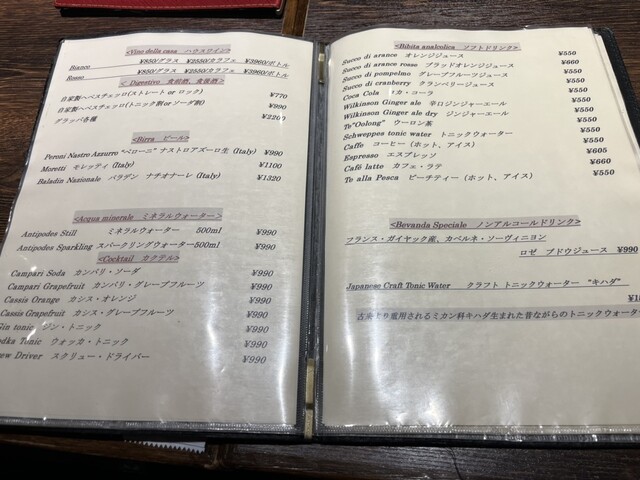 <Vino della casa ハウスワイン>
Bianco ¥850/グラス ¥2550/カラフェ ¥3960/ボトル
Rosso ¥850/グラス ¥2550/カラフェ ¥3960/ボトル
<Digestivo 食前酒、食後酒>
自家製ヘベスチェッロ(ストレート or ロック) ¥770
自家製ヘベスチェッロ(トニック割 or ソーダ割) ¥990
グラッパ各種 ¥2200
<Birra ビール>
Peroni Nastro Azzurro “ペローニ” ナストロアズーロ生 (Italy) ¥990
Moretti モレッティ (Italy) ¥1100
Baladin Nazionale バラデン ナチオナーレ (Italy) ¥1320
<Acqua minerale ミネラルウォーター>
Antipodes Still ミネラルウォーター 500ml ¥990
Antipodes Sparkling スパークリングウォーター500ml ¥990
<Cocktail カクテル>
Campari Soda カンパリ・ソーダ ¥990
Campari Grapefruit カンパリ・グレープフルーツ ¥990
Cassis Orange カシス・オレンジ ¥990
Cassis Grapefruit カシス・グレープフルーツ ¥990
Gin tonic ジン・トニック ¥990
dka Tonic ウォッカ・トニック ¥990
ew Driver スクリュー・ドライバー ¥990
<Bibita analcolica ソフトドリンク>
Succo di arance オレンジジュース ¥550
Succo di arance rosse ブラッドオレンジジュース ¥660
Succo di pompelmo グレープフルーツジュース ¥550
Succo di cranberry クランベリージュース ¥550
Coca Cola コカ・コーラ ¥550
Wilkinson Ginger ale 辛口ジンジャーエール ¥550
Wilkinson Ginger ale dry ジンジャーエール ¥550
Te"Oolong" ウーロン茶 ¥550
Schweppes tonic water トニックウォーター ¥550
Caffe コーヒー (ホット、アイス) ¥550
Espresso エスプレッソ ¥605
Café latte カフェ・ラテ ¥660
Te alla Pesca ピーチティー (ホット、アイス) ¥550
<Bevanda Speciale ノンアルコールドリンク>
フランス・ガイヤック産、カベルネ・ソーヴィニヨン
ロゼ ブドウジュース ¥990
Japanese Craft Tonic Water クラフト トニックウォーター “キハダ”
古来より重用されるミカン科キハダ生まれた昔ながらのトニックウォーター